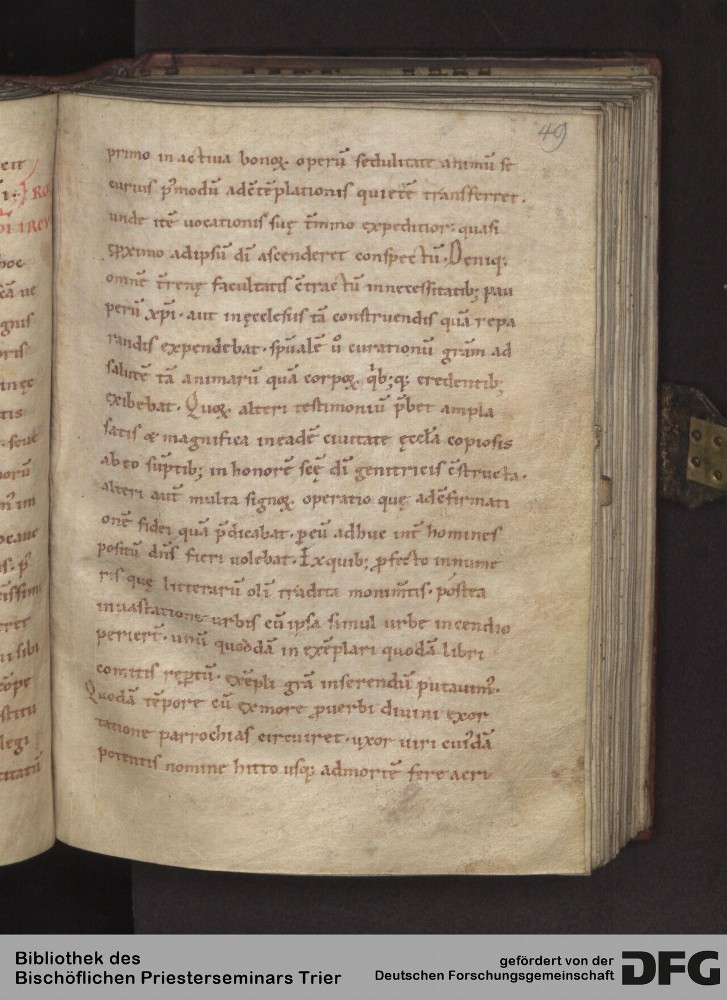 49
primo in actiua bonoꝝ operū sedulitate animū se
curius p̄modū adc̄tēplationis quietē transferret.
unde itē uocationis suę t̄mino expeditior quasi
ꝓximo adipsū dī ascenderet conspectū. Deniq;
omnē t̄renę facultatis c̄tractū innecessitatib; pau
perū xp̄i. aut inęcclesiis tā construendis quā repa
randis expendebat. sp̄ualē ů curationū gr̄am ad
salutē tā animarū quā corpoꝝ. q̇b;q; credentib;
exibebat. Quoꝝ alteri testimoniū p̄bet ampla
satis & magnifica ineadē ciuitate ęccl̄a copiosis
ab eo sūptib; in honorē sc̄ę dī genitricis c̄structa.
alteri aut̄ multa signoꝝ operatio quę adc̄firmati
onē fidei quā p̄dicabat. p eū adhuc int̄ homines
positū dn̄s fieri uolebat. Exquib; ꝓfecto innume
ris quę litterarū oli tradita monim̄tis. postea
inuastatione urbis cū ipsa simul urbe incendio
perier̄t. unū quoddā in exēplari quodā libri
comitis rep̄tū. exēpli grā inserendū putauim᷒.
Quodā tēpore cū ex more ꝓ uerbi diuini exor
tatione parrochias circuiret. uxor uiri cuiꝰdā
potentis nomine hitto usq; admortē fere acri
Bibliothek des
Bischöflichen Priesterseminars Trier
gefördert von der
Deutschen Forschungsgemeinschaft
DFG